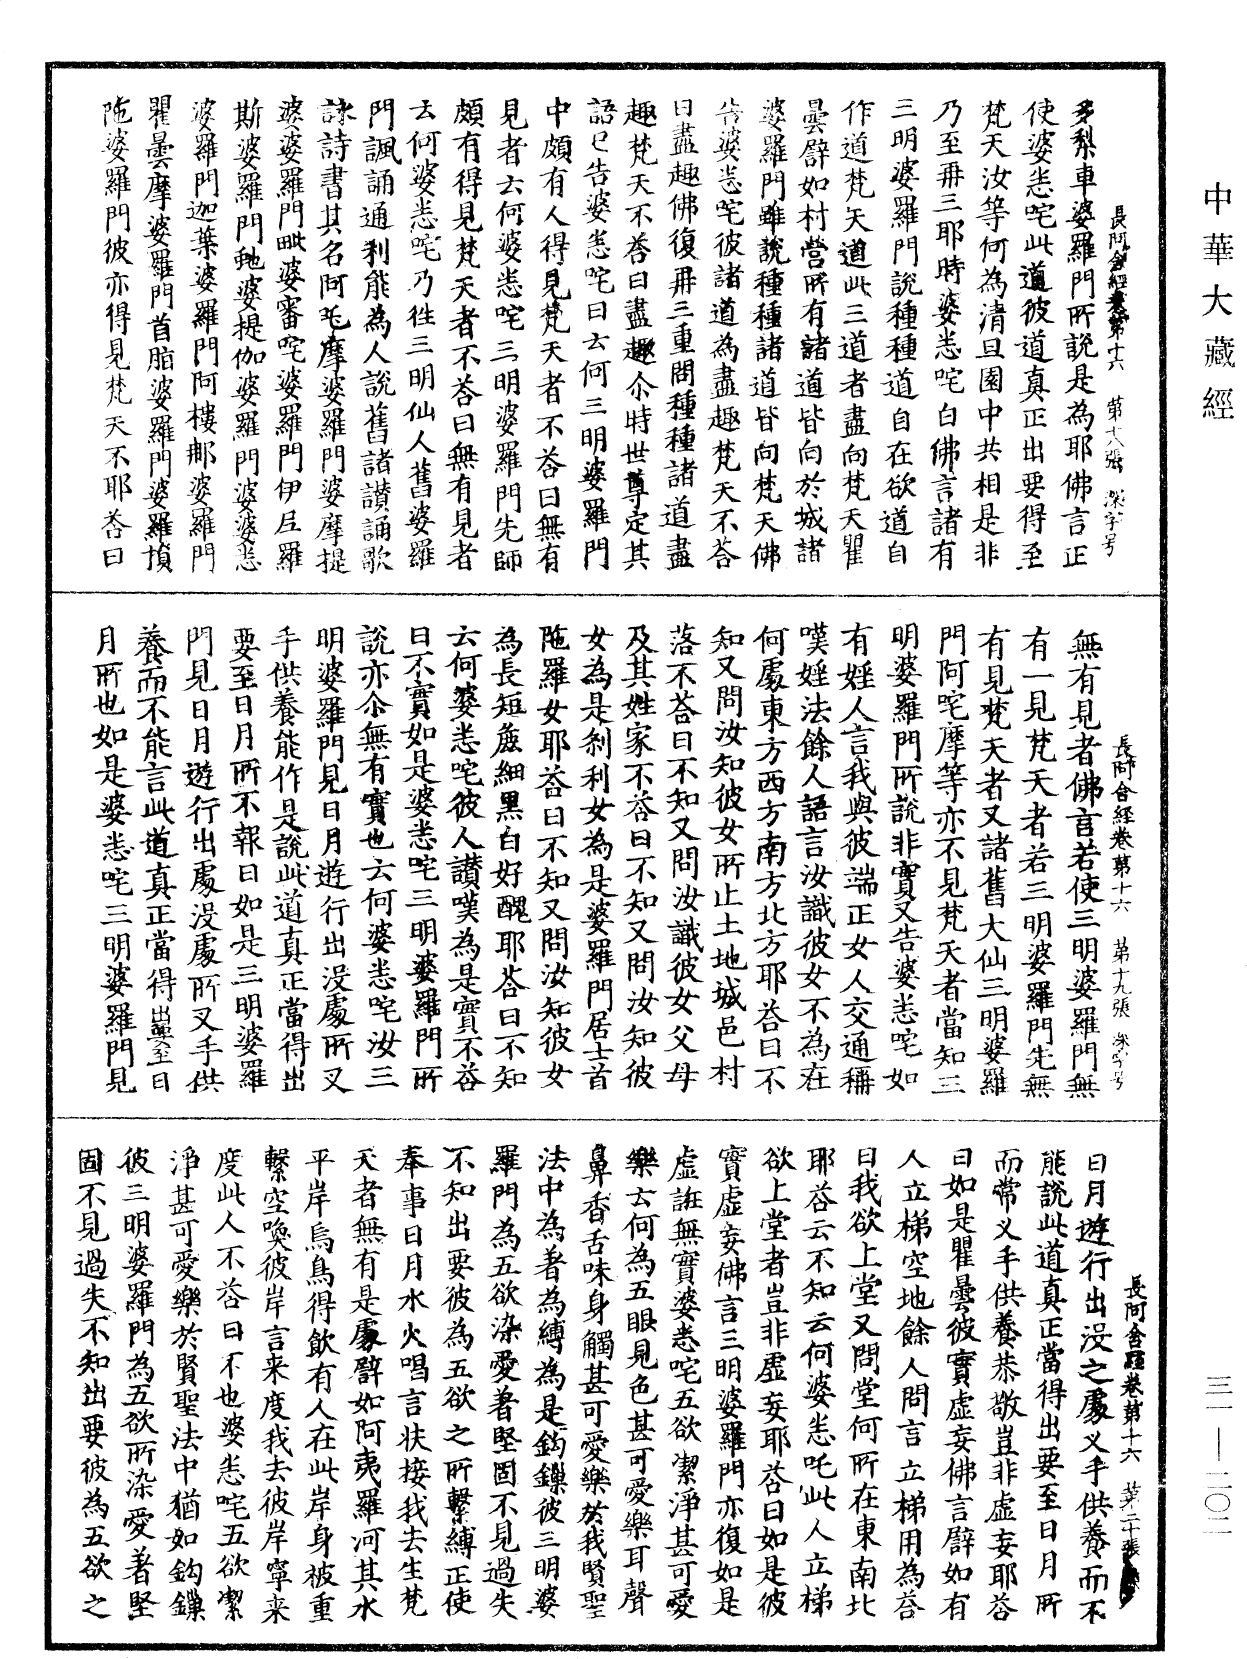 中華大藏經
長阿含經卷第十六　第十八張　深字号
多梨車婆羅門所說是為耶佛言正
使婆悉咤此道彼道真正出要得至
梵天汝等何為清旦園中共相是非
乃至再三耶時婆悉咤白佛言諸有
三明婆羅門說種種道自在欲道自
作道梵天道此三道者盡向梵天瞿
曇譬如村營所有諸道皆向於城諸
婆羅門雖說種種諸道皆向梵天佛
告婆悉咤彼諸道為盡趣梵天不荅
曰盡趣佛復再三重問種種諸道盡
趣梵天不荅曰盡趣尒時世尊定其
語已告婆悉咤曰云何三明婆羅門
中頗有人得見梵天者不荅曰無有
見者云何婆悉咤三明婆羅門先師
頗有得見梵天者不荅曰無有見者
云何婆悉咤乃徃三明仙人舊婆羅
門諷誦通利能為人說舊諸讃誦歌
詠詩書其名阿咤摩婆羅門婆摩提
婆婆羅門毗婆審咤婆羅門伊尼羅
斯婆羅門虵婆提伽婆羅門婆婆悉
婆羅門迦葉婆羅門阿樓那婆羅門
瞿曇摩婆羅門首脂婆羅門婆羅損
陁婆羅門彼亦得見梵天不耶荅曰
長阿含經卷第十六　第十九張　深字号
無有見者佛言若使三明婆羅門無
有一見梵天者若三明婆羅門先無
有見梵天者又諸舊大仙三明婆羅
門阿咤摩等亦不見梵天者當知三
明婆羅門所說非實又告婆悉咤如
有婬人言我與彼端正女人交通稱
嘆婬法餘人語言汝識彼女不為在
何處東方西方南方北方耶荅曰不
知又問汝知彼女所止土地城邑村
落不荅曰不知又問汝識彼女父母
及其姓家不荅曰不知又問汝知彼
女為是剎利女為是婆羅門居士首
陁羅女耶荅曰不知又問汝知彼女
為長短麁細黑白好醜耶荅曰不知
云何婆悉咤彼人讃嘆為是實不荅
曰不實如是婆悉咤三明婆羅門所
說亦尒無有實也云何婆悉咤汝三
明婆羅門見日月遊行出没處所叉
手供養能作是說此道真正當得出
要至日月所不報曰如是三明婆羅
門見日月遊行出處没處所叉手供
養而不能言此道真正當得出要至日
月所也如是婆悉咤三明婆羅門見
長阿含經卷第十六　第二十張
日月遊行出没之處叉手供養而不
能說此道真正當得出要至日月所
而常叉手供養恭敬豈非虛妄耶荅
曰如是瞿曇彼實虛妄佛言譬如有
人立梯空地餘人問言立梯用為荅
曰我欲上堂又問堂何所在東南北
耶荅云不知云何婆悉咤此人立梯
欲上堂者豈非虛妄耶荅曰如是彼
實虛妄佛言三明婆羅門亦復如是
虛誑無實婆悉咤五欲潔淨甚可愛
樂云何為五眼見色甚可愛樂耳聲
鼻香舌味身觸甚可愛樂於我賢聖
法中為著為縛為是鈎鏁彼三明婆
羅門為五欲染愛著堅固不見過失
不知出要彼為五欲之所繫縛正使
奉事日月水火唱言扶接我去生梵
天者無有是處譬如阿夷羅河其水
平岸烏鳥得飲有人在此岸身被重
繫空喚彼岸言来度我去彼岸寧来
度此人不荅曰不也婆悉咤五欲潔
淨甚可愛樂於賢聖法中猶如鈎鏁
彼三明婆羅門為五欲所染愛著堅
固不見過失不知出要彼為五欲之
三一—二〇二